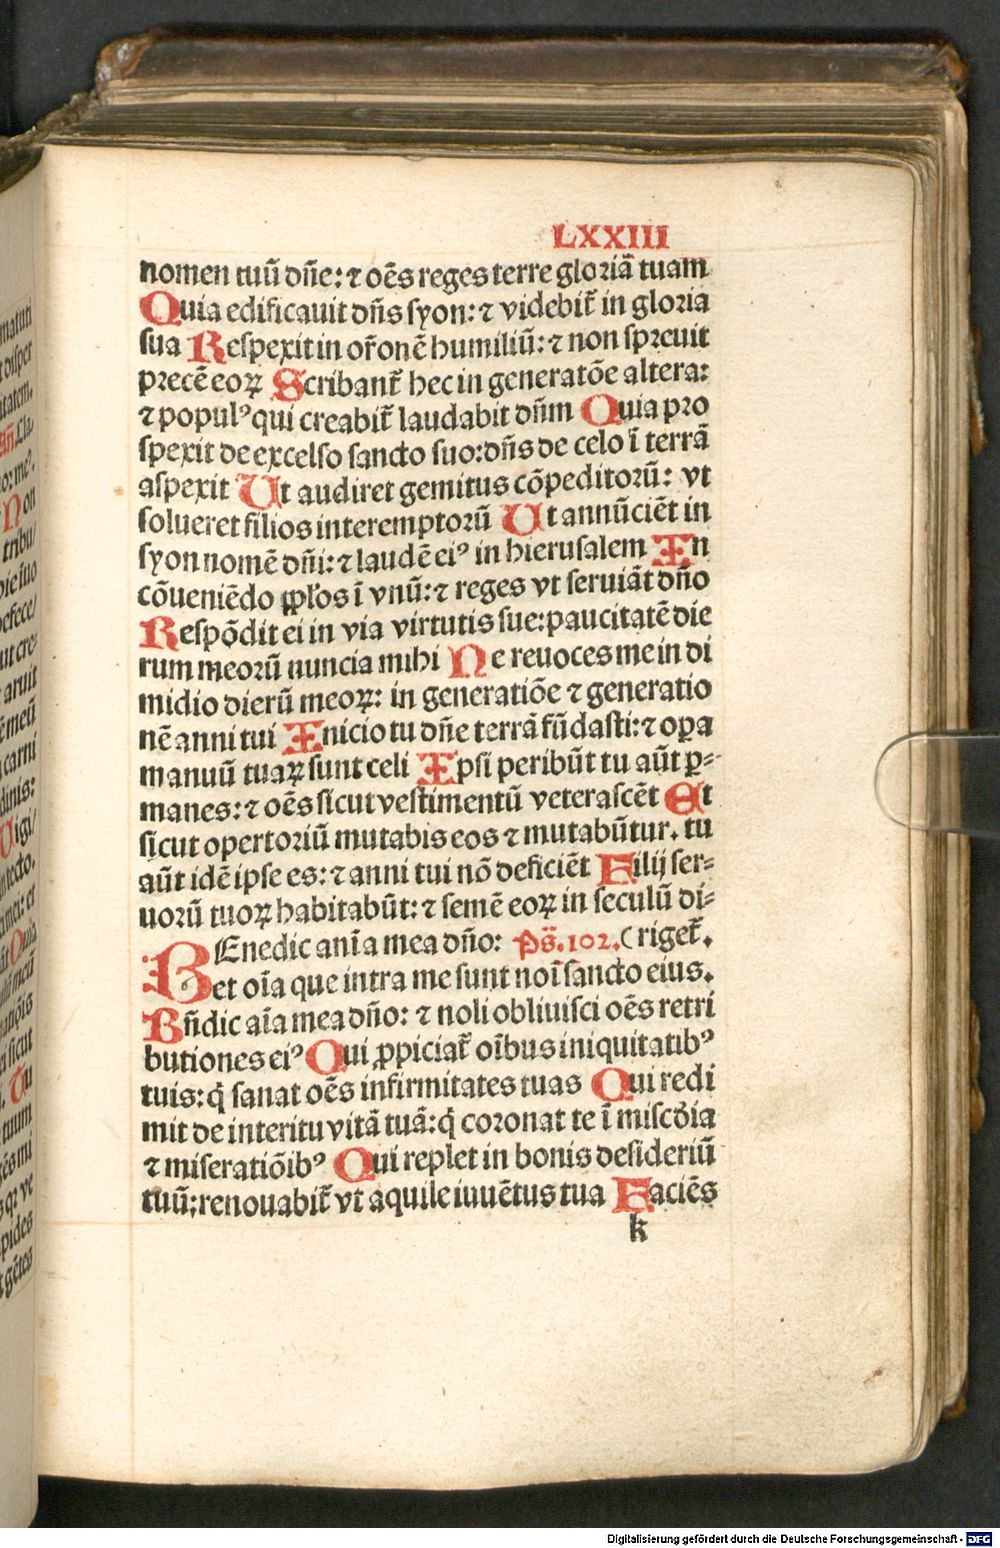 LXXIII
nomen tuū dn̄e: ⁊ oēs reges terre gloriā tuam
Quia edificauit dn̄s syon: ⁊ videbit᷑ in gloria
sua Respexit in or̄onē humiliū: ⁊ non spreuit
precē eoꝝ Scribant᷑ hec in generatōe altera:
⁊ populꝰ qui creabit᷑ laudabit dn̄m Quia pro
spexit de excelso sancto suo: dn̄s de celo ī terrā
aspexit Ut audiret gemitus cōpeditorū: vt
solueret filios interemptorū Ut annūciēt in
syon nomē dn̄i: ⁊ laudē eiꝰ in hierusalem In
cōueniēdo ppl̄os ī vnū: ⁊ reges vt seruiāt dn̄o
Respōdit ei in via virtutis sue: paucitatē die
rum meorū nuncia mihi Ne reuoces me in di
midio dierū meoꝝ: in generatiōe ⁊ generatio
nē anni tui Inicio tu dn̄e terrā fūdasti: ⁊ oꝑa
manuū tuaꝝ sunt celi Ipsi peribūt tu aūt ꝑ-
manes: ⁊ oēs sicut vestimentū veterascēt Et
sicut opertoriū mutabis eos ⁊ mutabūtur. tu
aūt idē ipse es: ⁊ anni tui nō deficiēt Filij ser-
uorū tuoꝝ habitabūt: ⁊ semē eoꝝ in seculū di-
BEnedic anīa mea dn̄o: Ps̄. 102. (riget᷑.
et oīa que intra me sunt noī sancto eius.
Bn̄dic aīa mea dn̄o: ⁊ noli obliuisci oēs retri
butiones eiꝰ Qui ꝓpiciat᷑ oībus iniquitatibꝰ
tuis: q̇ sanat oēs infirmitates tuas Qui redi
mit de interitu vitā tuā: q̇ coronat te ī misc̄dia
⁊ miseratiōibꝰ Qui replet in bonis desideriū
tuū: renouabit᷑ vt aquile iuuētus tua Faciēs
k
Digitalisierung gefördert durch die Deutsche Forschungsgemeinschaft - DFG